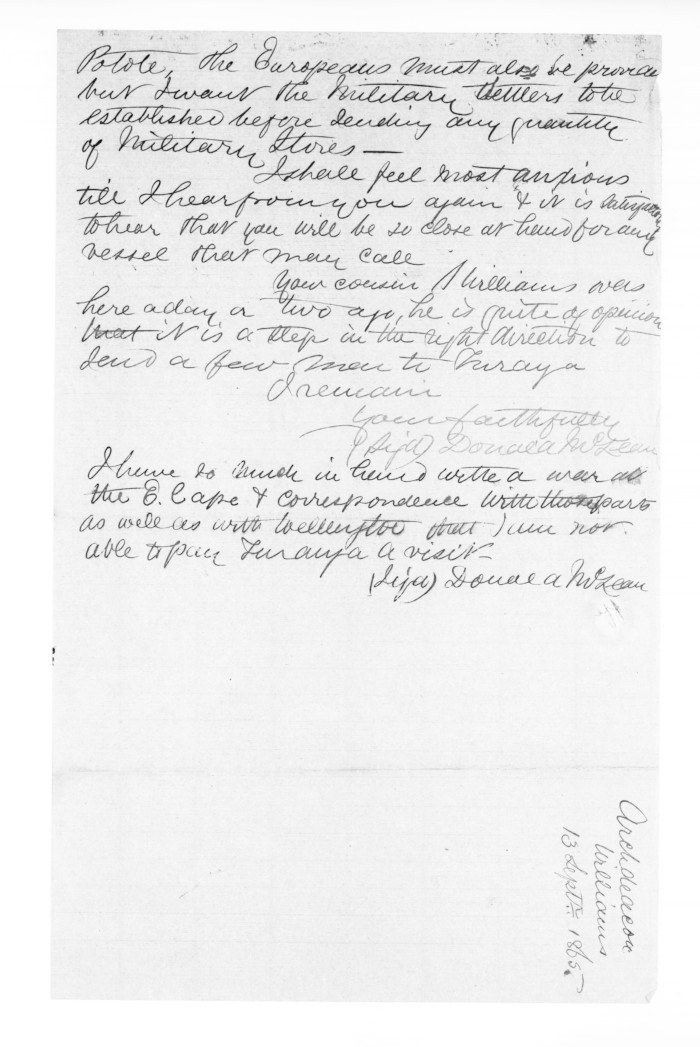 Potote, the Europeans must also be provided
but I want the Military Settlers to be
established before sending any quantity
of Military Stores —
I shall feel most anxious
till I hear from you again & it is satisfactory
to hear that you will be so close at hand for any
vessel that may call
Your cousin J Williams was
here a day or two ago, he is quite of opinion
that it is a step in the right direction to
send a few men to Turanga
I remain
Yours faithfully
(Sigd) Donald McLean
I have so much in hand with a war at
the E. Cape & correspondence with those parts
as well as with Wellington that I am not
able to pay Turanga a visit
(Sigd) Donald McLean
Archdeacon
Williams
13 Septr 1865.